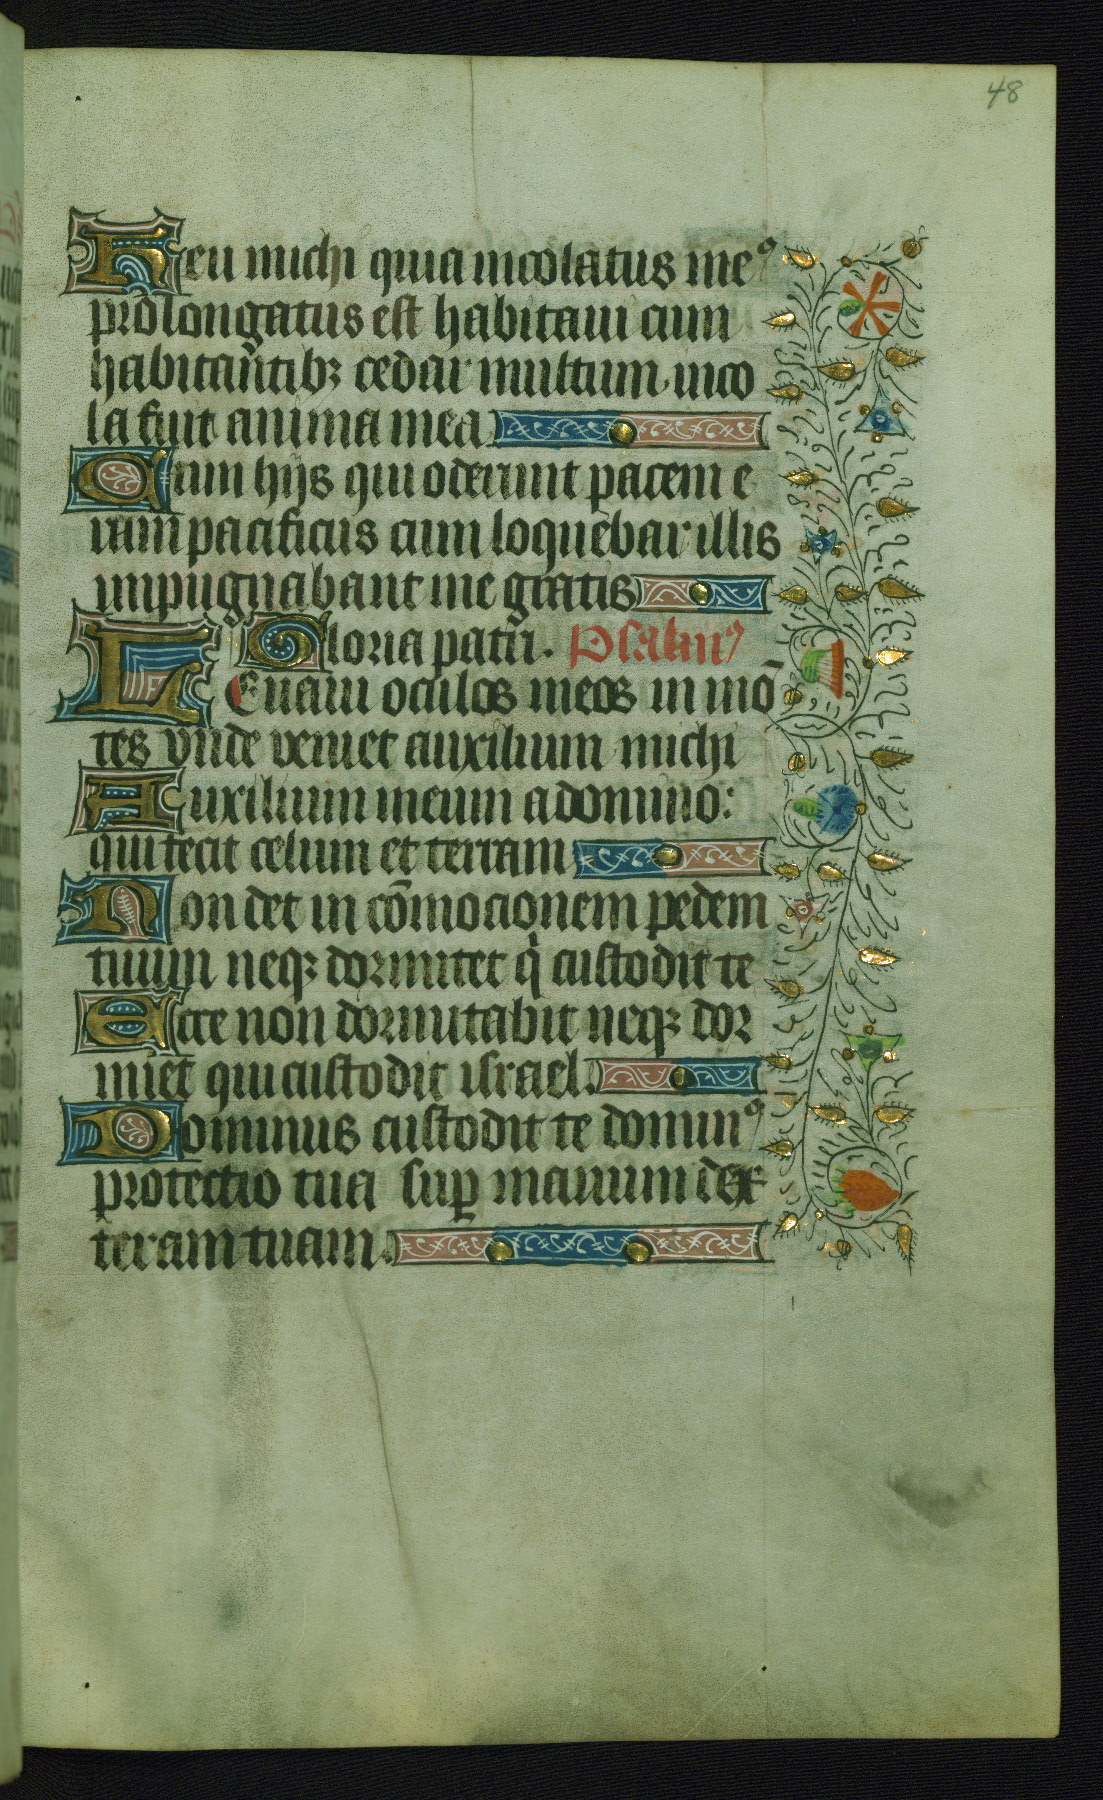 48
Heu michi quia incolatus meꝰ
prolongatus est habitaui cum
habitan̄tibꝫ cedar multum inco
la fuit anima mea
Cum hijs qui oderunt pacem e
ram pacificus cum loquebar illis
impugnabant me gratis
Gloria patri. Psalmꝰ
Leuaui oculos meos in mō
tes vnde veniet auxilium michi
Auxilium meum a domino:
qui fecit celum et terram
Non det in cōmocionem pedem
tuum neqꝫ dormitet qͥ custodit te
Ecce non dormitabit neqꝫ dor
miet qui custodit israel.
Dominus custodit te dominꝰ
protectio tua suꝑ manum dex
teram tuam.